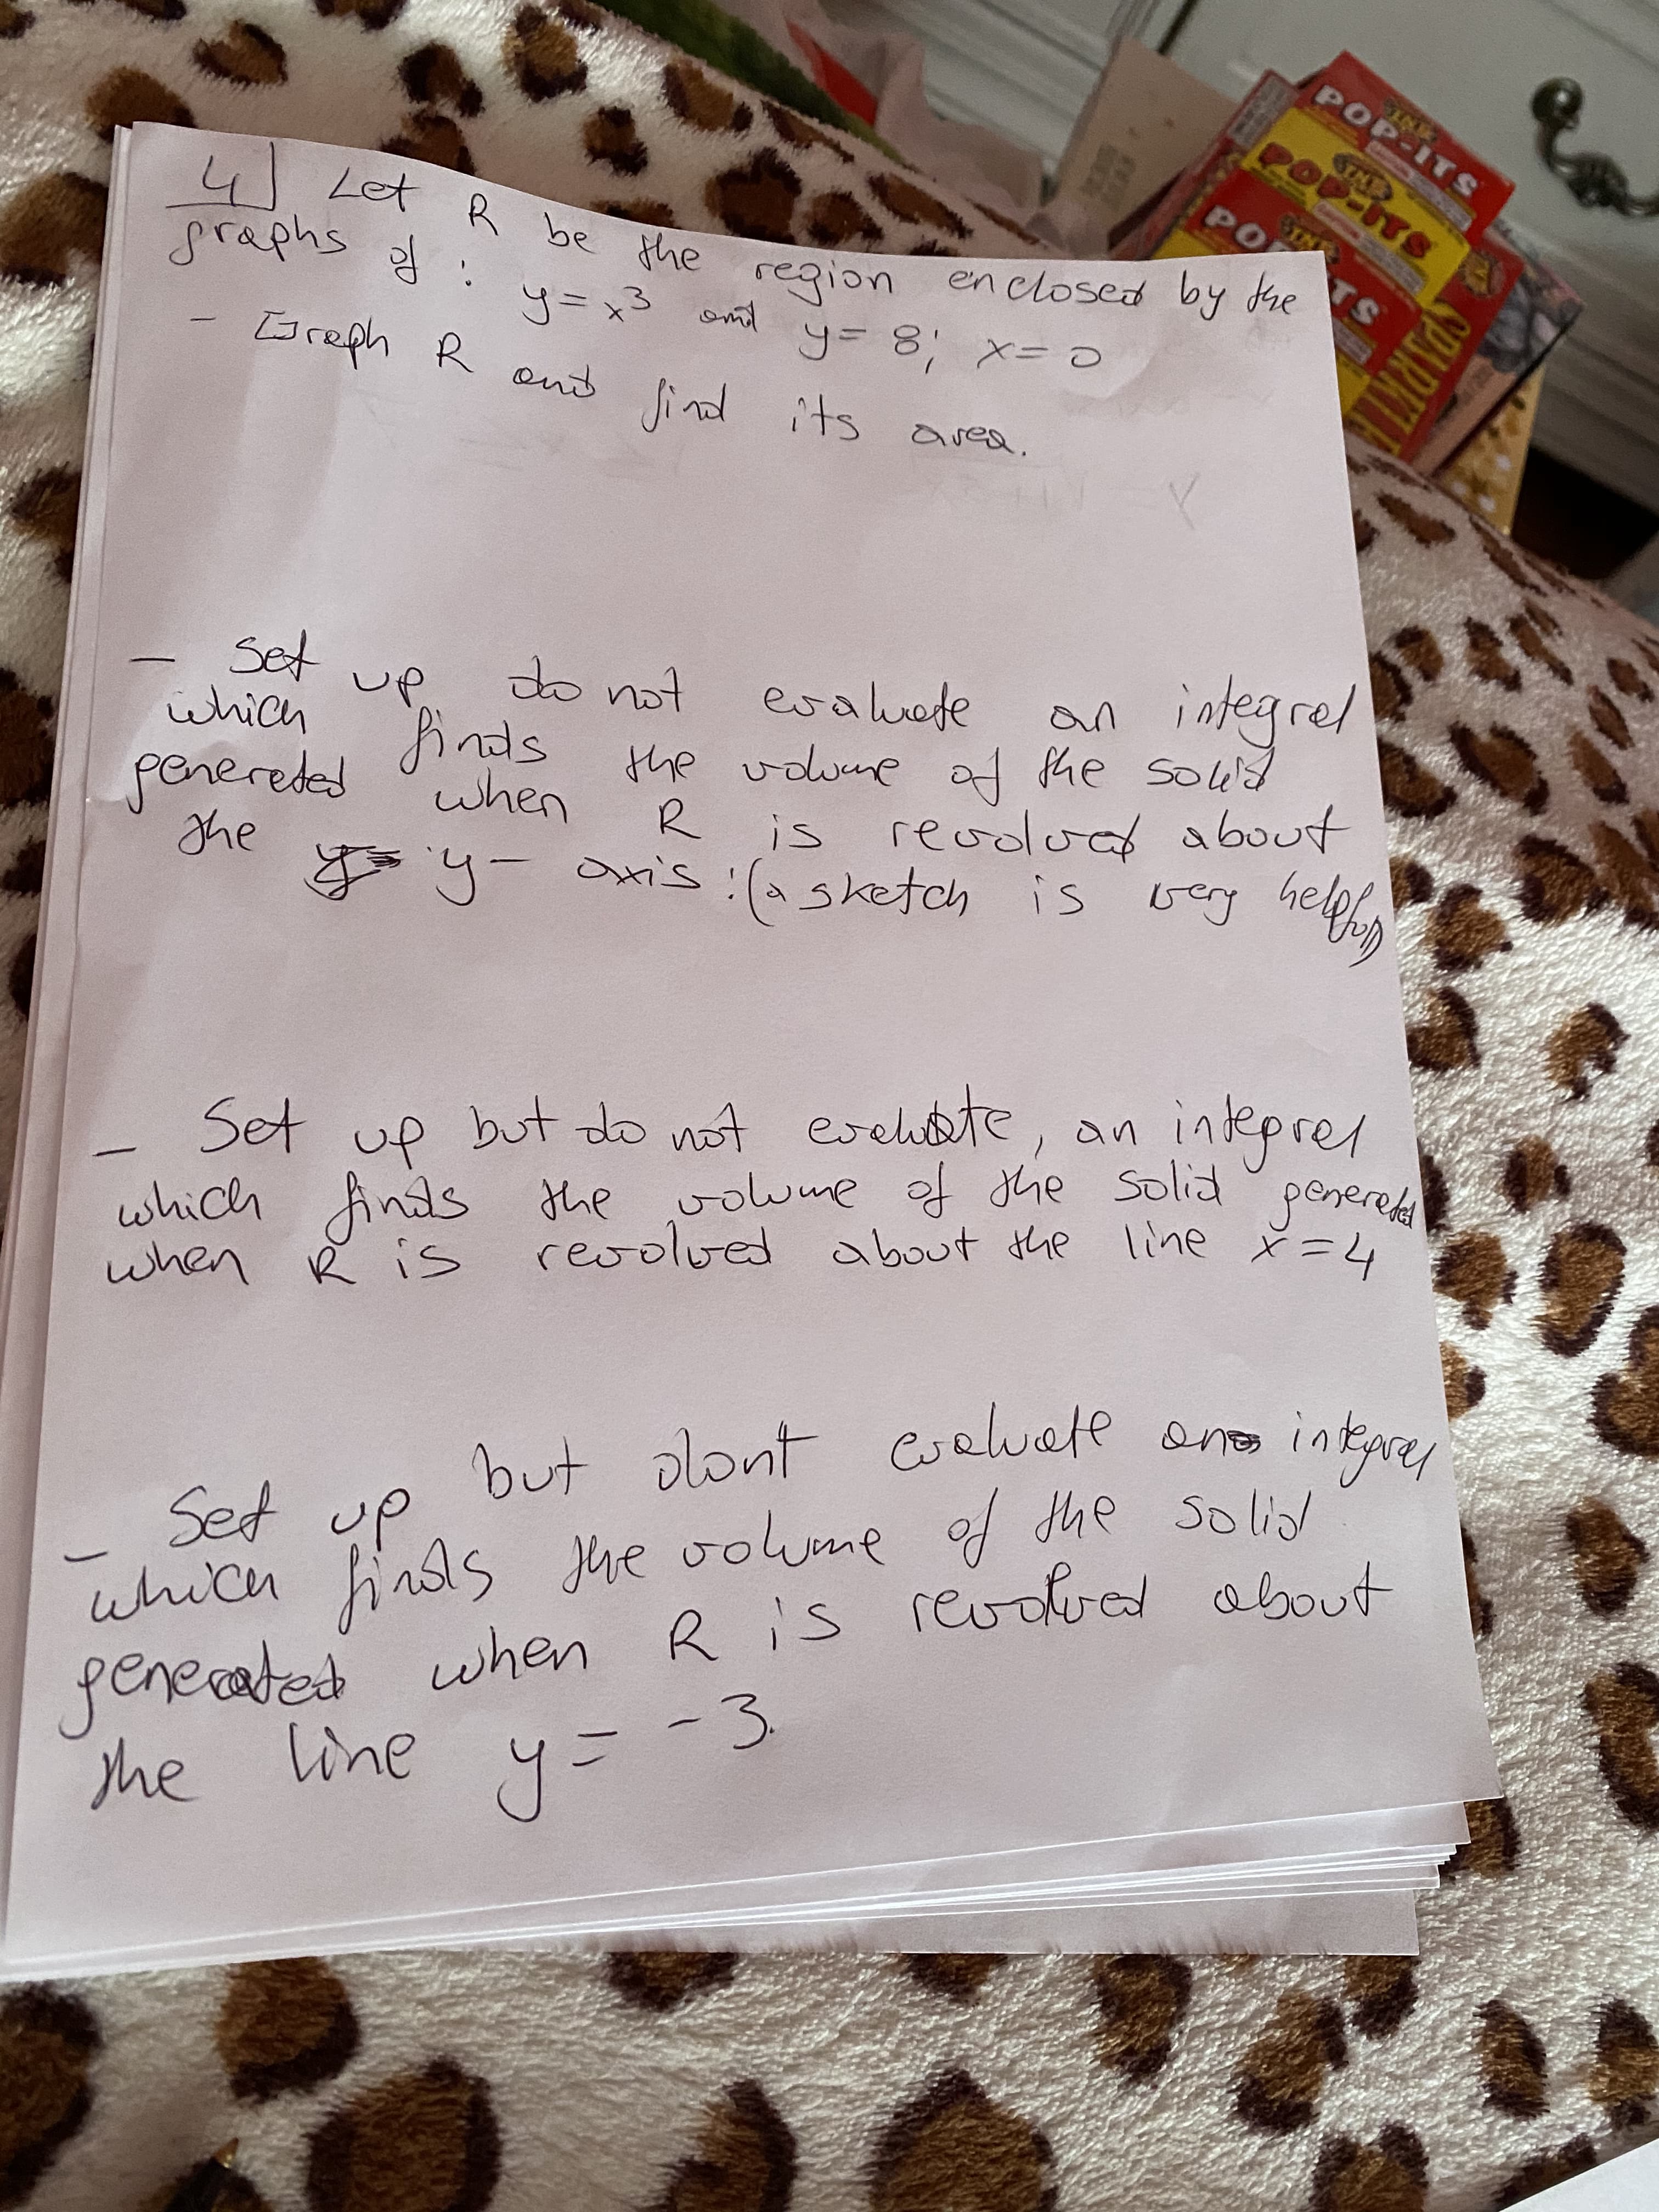 4] Let R be the region enclosed by the
graphs of : y = x³ and y = 8; x = 0
- Graph R and find its area.
- Set up do not evaluate an integral
which finds the volume of the solid
generated when R is revolved about
the y - axis : (a sketch is very helpful)
- Set up but do not evaluate, an integral
which finds the volume of the solid generated
when R is revolved about the line x = 4
- Set up but dont evaluate an integral
which finds the volume of the solid
generated when R is revolved about
the line y = - 3.
TNT
POP-ITS
TNT
POP-ITS
TNT
SPARKL